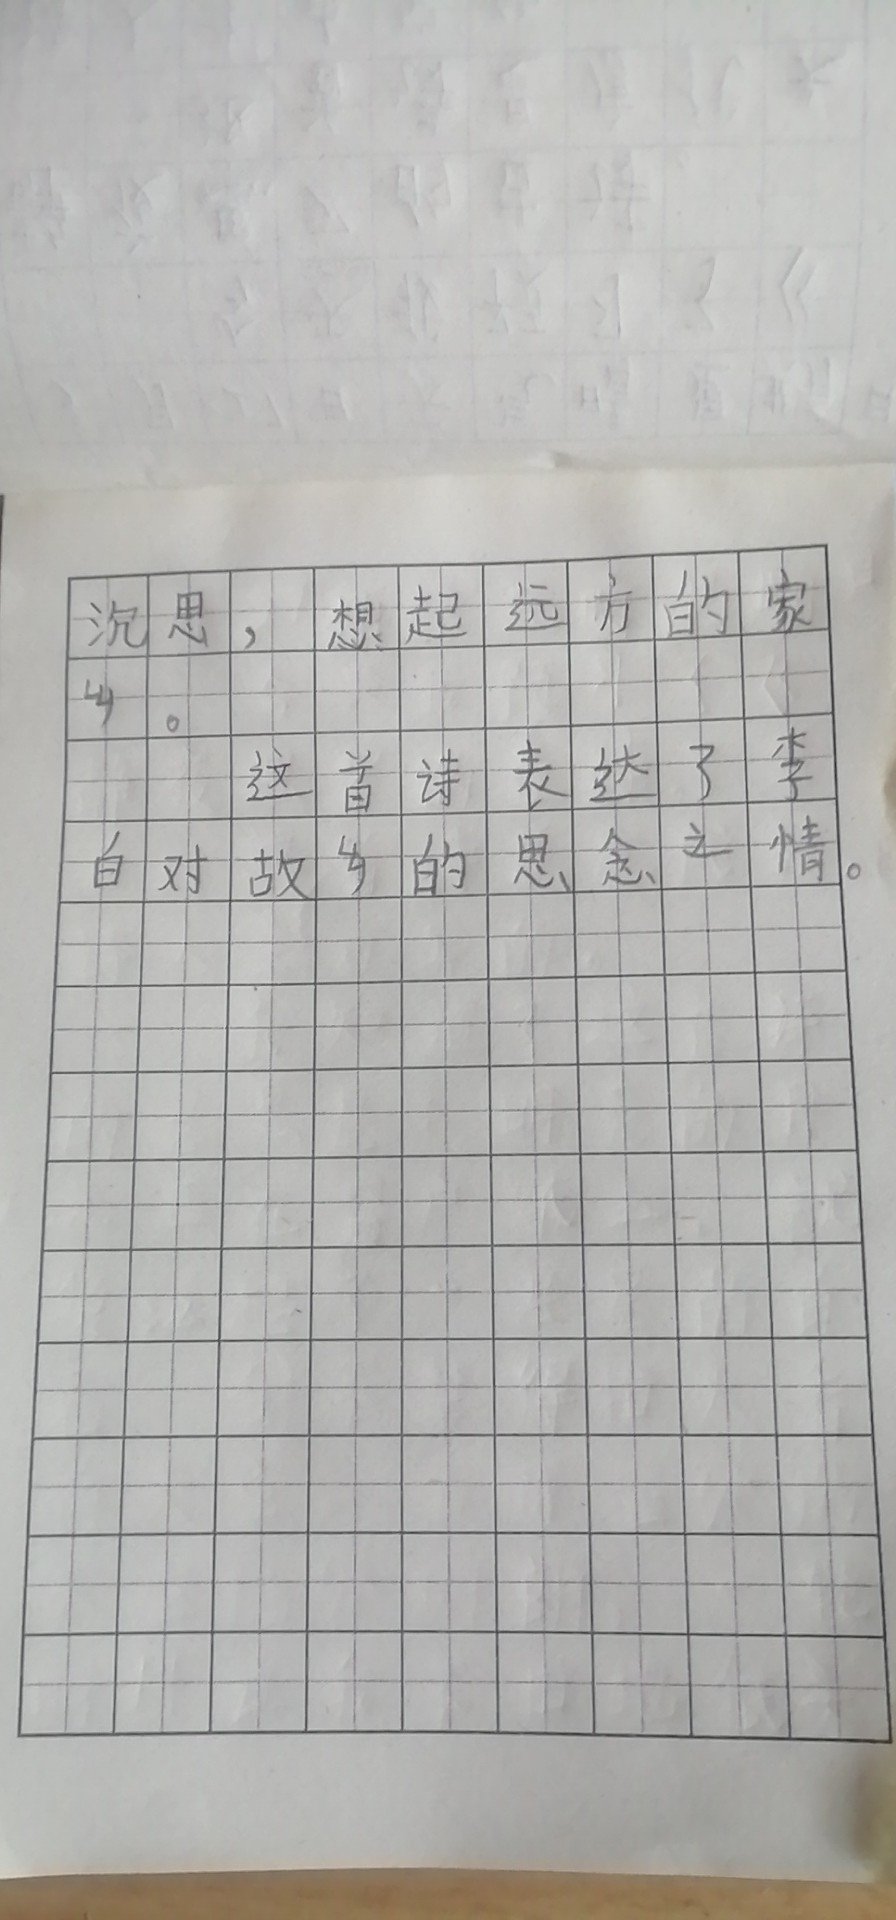 沉思，想起远方的家
乡。
这首诗表达了李
白对故乡的思念之情。